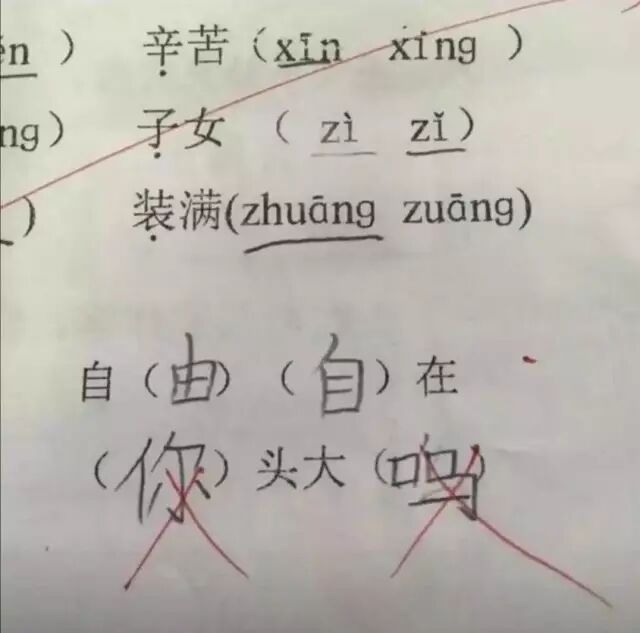 ěn ) 辛苦 (xīn xīng )
ng) 子女 ( zì zǐ )
) 装满(zhuāng zuāng)
自 (由) (自) 在
(你) 头大 (吗)